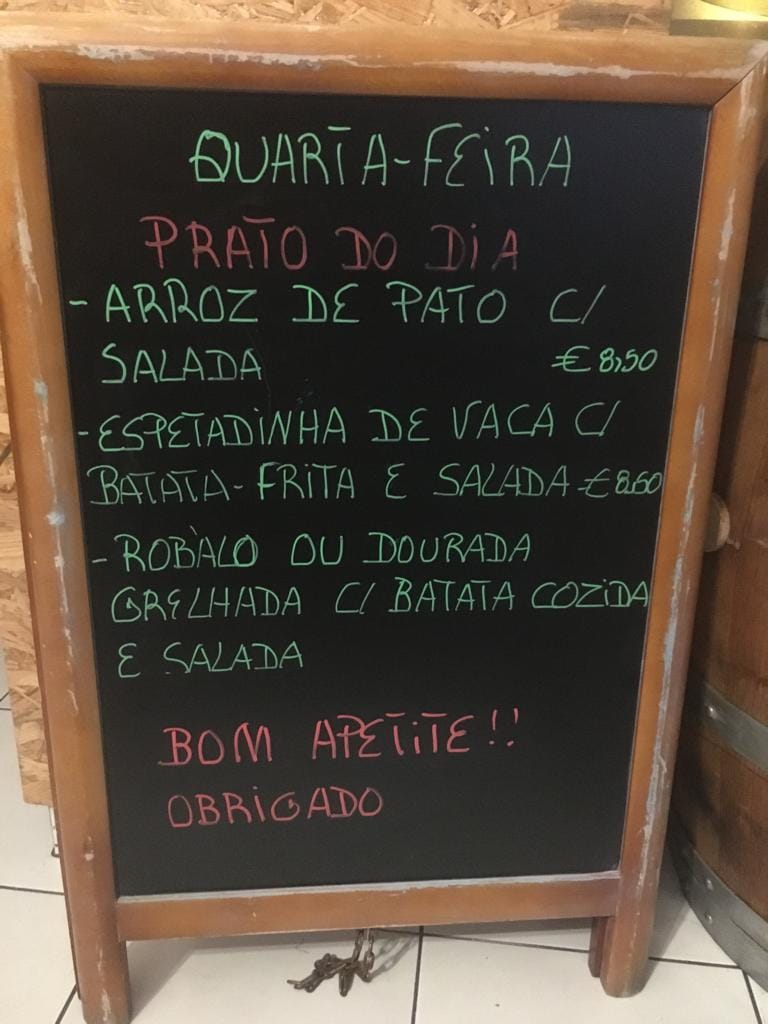 QUARTA-FEIRA
PRATO DO DIA
- ARROZ DE PATO C/
SALADA € 8,50
- ESPETADINHA DE VACA C/
BATATA-FRITA E SALADA € 8.50
- ROBALO OU DOURADA
GRELHADA C/ BATATA COZIDA
E SALADA
BOM APETITE!!
OBRIGADO